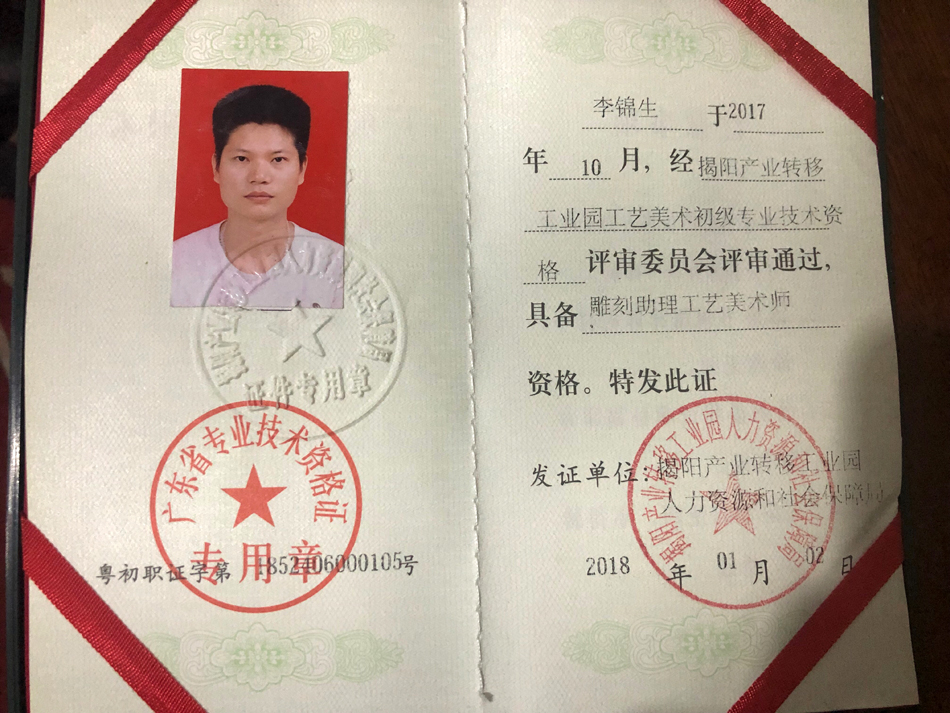 证件专用章
广东省专业技术资格证
专用章
粤初职证字第 1852406000105号
李锦生 于2017
年 10 月，经 揭阳产业转移
工业园工艺美术初级专业技术资
格 评审委员会评审通过，
具备 雕刻助理工艺美术师
资格。特发此证
发证单位：揭阳产业转移工业园
人力资源和社会保障局
揭阳产业转移工业园人力资源和社会保障局
2018 年 01 月 02 日